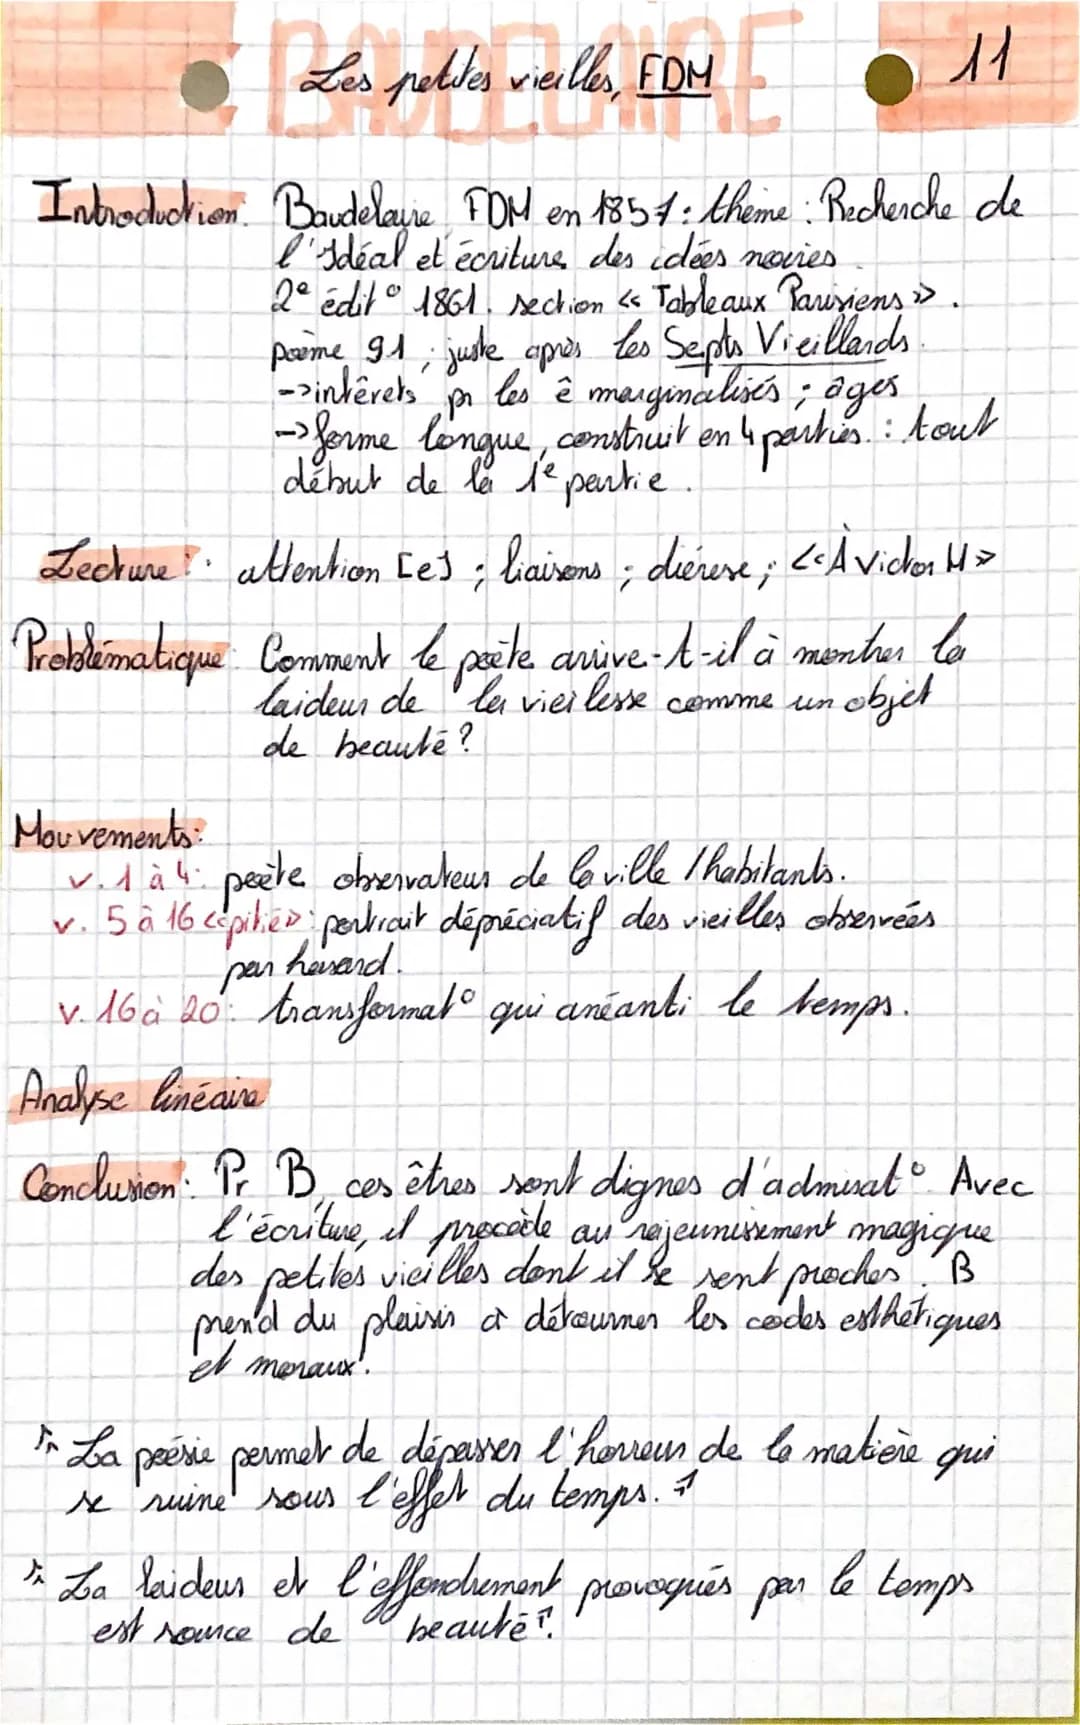 BAUDELAIRE
Les petites vieilles, FDM
11
Introduction: Baudelaire FDM en 1857 : thème : Recherche de
l'Idéal et écriture des idées noires.
2e édit° 1861. section << Tableaux Parisiens >>.
poème 91 ; juste après les Septs Vieillards.
-> intêrets pr les ê marginalisés ; âges
-> forme longue, construit en 4 parties. : tout
début de la 1e partie.
Lecture : attention [e] ; liaisons ; diérèse ; <<À Victor H>>
Problématique : Comment le poète arrive-t-il à montrer la
laideur de la vieillesse comme un objet
de beauté ?
Mouvements :
v. 1 à 4 : poète observateur de la ville / habitants.
v. 5 à 16 <<pitié>> : portrait dépréciatif des vieilles observées
par hasard.
v. 16 à 20 : transformat° qui anéanti le temps.
Analyse linéaire
Conclusion : Pr B, ces êtres sont dignes d'admirat°. Avec
l'écriture, il procède au rajeunissement magique
des petites vieilles dont il se sent proches. B
prend du plaisir à détourner les codes esthétiques
et moraux.
La poésie permet de dépasser l'horreur de la matière qui
se ruine sous l'effet du temps.
La laideur et l'effondrement provoqués par le temps
est source de beauté.